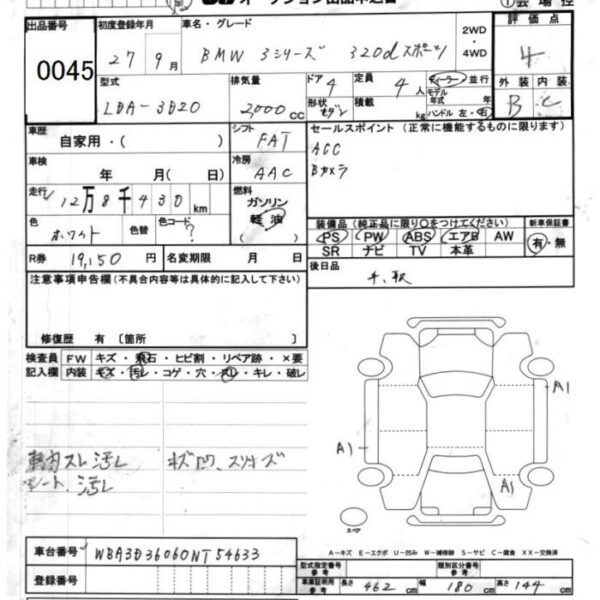 オークション出品申込書
① 会場控
出品番号 0045
初度登録年月 27年 9月
車名・グレード BMW 3シリーズ 320d スポーツ
2WD・4WD
評価点 4
型式 LDA-3D20
排気量 2,000 cc
ドア 4
形状 セダン
定員 4人
積載 kg
ディーラー・並行
モデル年式 年
ハンドル 左・右
外装 B
内装 C
車歴 自家用・( )
シフト FAT
車検 年 月( 日)
冷房 AAC
走行 12万8千430 km
燃料 ガソリン 軽油 ( )
色 ホワイト
色替
色コード ?
セールスポイント (正常に機能するものに限ります)
ACC
Bカメラ
装備品(純正品に限り○をつけてください)
PS PW ABS エアB AW
SR ナビ TV 本革
新車保証書 有・無
R券 19,150 円
名変期限 月 日
後日品
手、取
注意事項申告欄(不具合内容等は具体的に記入して下さい)
修復歴 有〔箇所 〕
検査員記入欄
FW キズ・飛石・ヒビ割・リペア跡・×要
内装 キズ・汚レ・コゲ・穴・スレ・キレ・破レ
車内スレ汚レ キズ凹、スリキズ
シート、汚レ
A1
A1
A1
スペア
A-キズ E-エクボ U-凹み W-補修跡 S-サビ C-腐食 XX-交換済
車台番号 WBA3D36060NT54633
登録番号
型式指定番号 参考
類別区分番号 参考
車庫証明用 参考 長さ 462 cm 幅 180 cm 高さ 144 cm